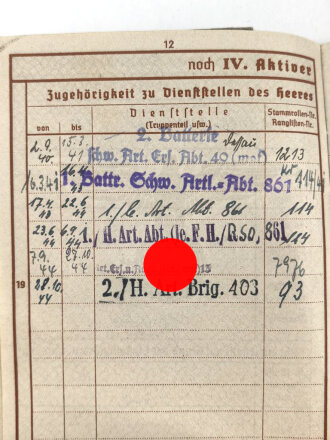 12
noch IV. Aktiver
Zugehörigkeit zu Dienststellen des Heeres
von bis Dienststelle (Truppenteil usw.) Stammrollen-Nr. Ranglisten-Nr.
2. Batterie Dessau
2.9. 40. 15.3. 41 schw. Art. Ers. Abt. 49 (mot) 1213
16.3.41 1. Battr. Schw. Artl.-Abt. 861 414
17.4. 22.6. 44 1./ Art. Abt. 861 114
23.6. 44 6.9. 1./H. Art. Abt. (le. F. H./RSO) 861 114
7.9. 44 27.10. 44 13 7976
19 28.10. 44 2./H. Art. Brig. 403 93